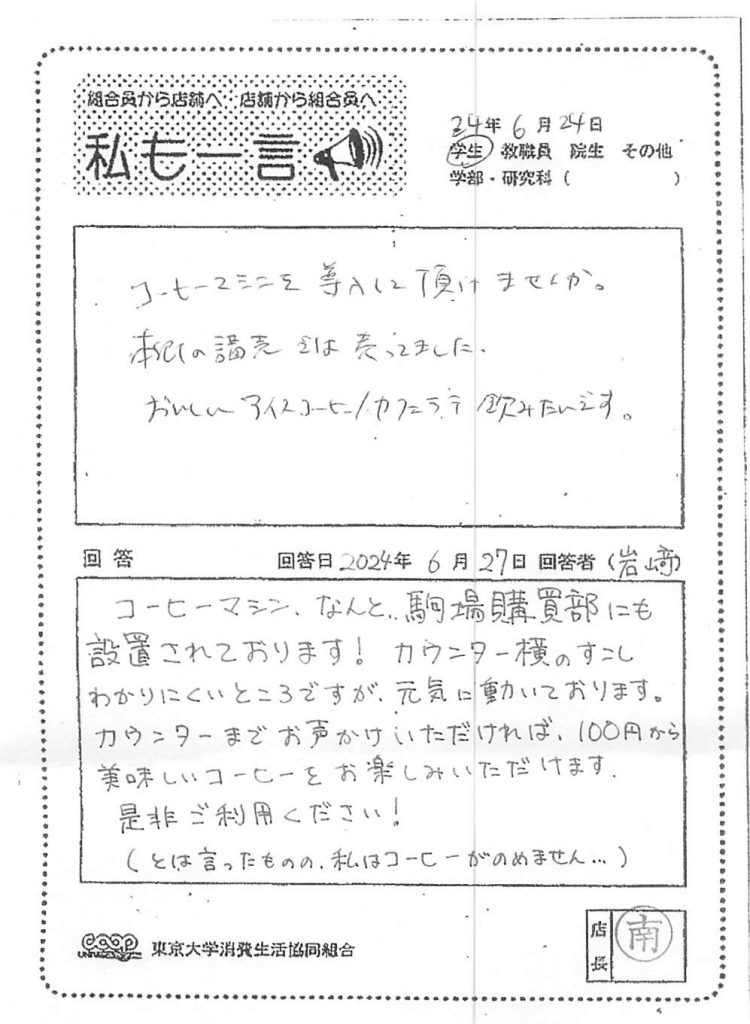 組合員から店舗へ 店舗から組合員へ
私も一言
24年 6月 24日
学生 教職員 院生 その他
学部・研究科 ( )
コーヒーマシンを 導入して 頂けませんか。
本郷の購売では 売ってました.
おいしい アイスコーヒー/カフェラテ 飲みたいです。
回答 回答日 2024年 6月 27日 回答者 (岩﨑)
コーヒーマシン、なんと、駒場購買部にも
設置されております! カウンター横のすこし
わかりにくいところですが、元気に動いております。
カウンターまでお声かけいただければ、100円から
美味しいコーヒーをお楽しみいただけます.
是非ご利用ください!
(とは言ったものの、私はコーヒーがのめません…)
coop
東京大学消費生活協同組合
店長 南